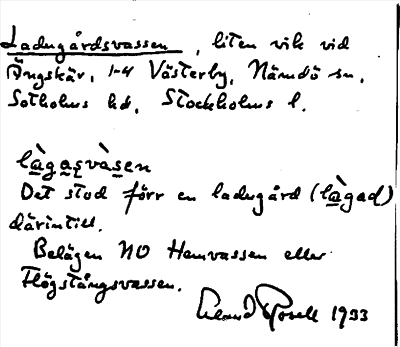 Ladugårdsvassen, liten vik vid
Ängskär, 1-4 Västerby, Nämdö sn,
Sotholms hd, Stockholms l.
làgasvàsen
Det stod förr en ladugård (làgad)
därintill.
Belägen NO Hemvassen eller
Flögstångsvassen.
1933